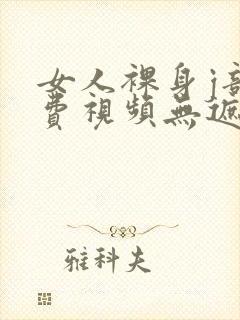 女人裸身j
費視頻無遮
雅科夫